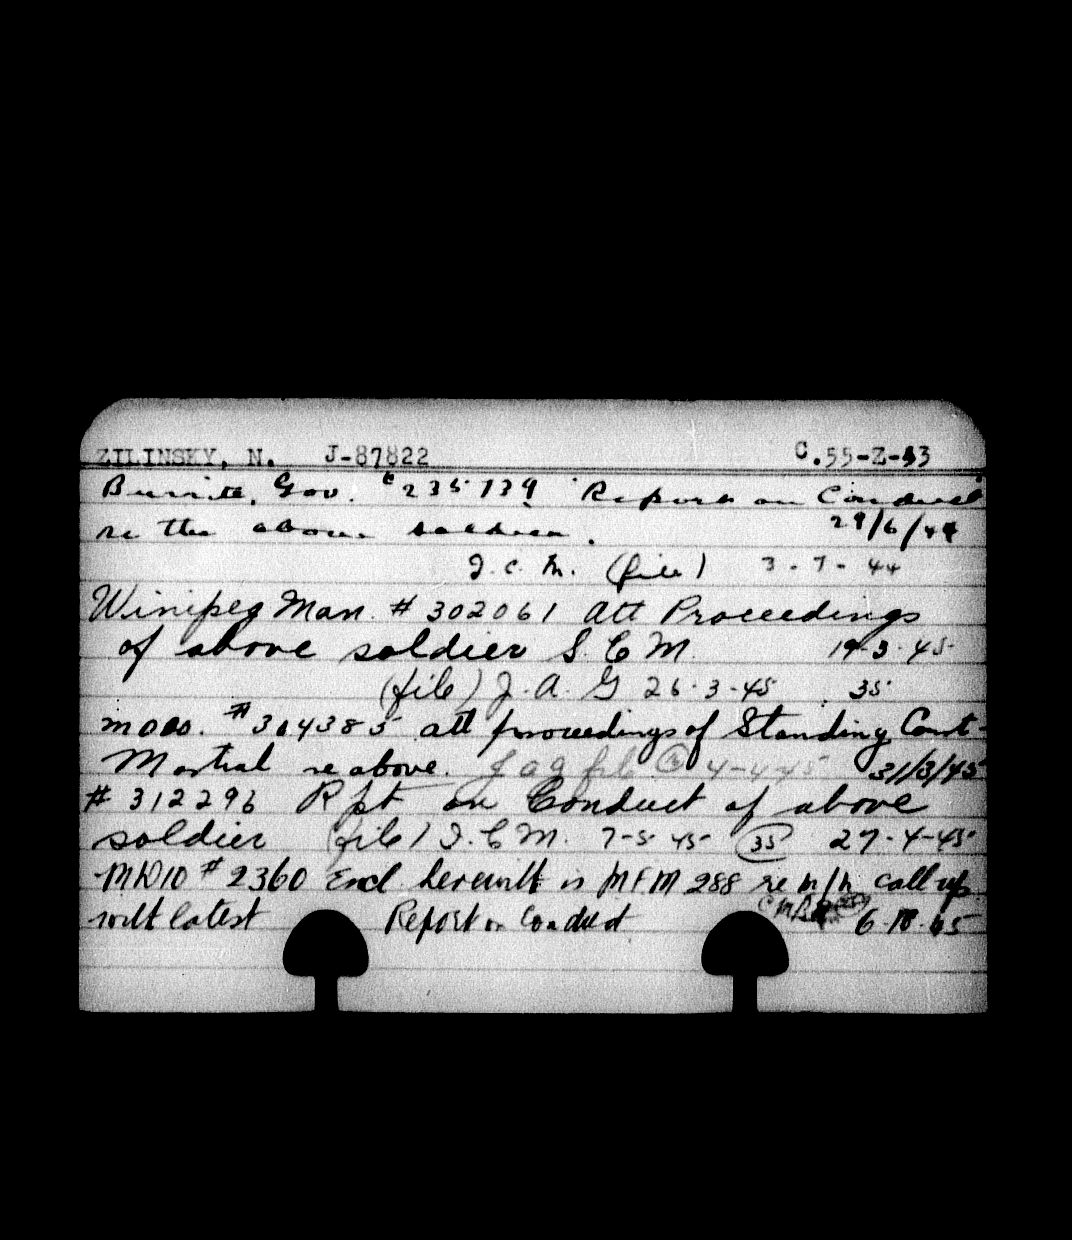 ZILINSKY, N. J-87822 C.55-Z-43
Gov. 235739 Report on Conduct
re the above soldier. 29/6/44
J. C. M. (file) 3-7-44
Winipeg Man. # 302061 att Proceedings
of above soldier S. C M. 19-3-45
(file) J. A. G 26-3-45 35
#304385 att proceedings of Standing Court-
Martial re above. J a g file 4-4-45 31/3/45
# 312296 Rpt on Conduct of above
soldier (file) J. C M. 7-5-45 35 27-4-45
MD10 #2360 Encl herewith is MFM 288 re m/m call up
with latest Report on Conduct 6-10-45